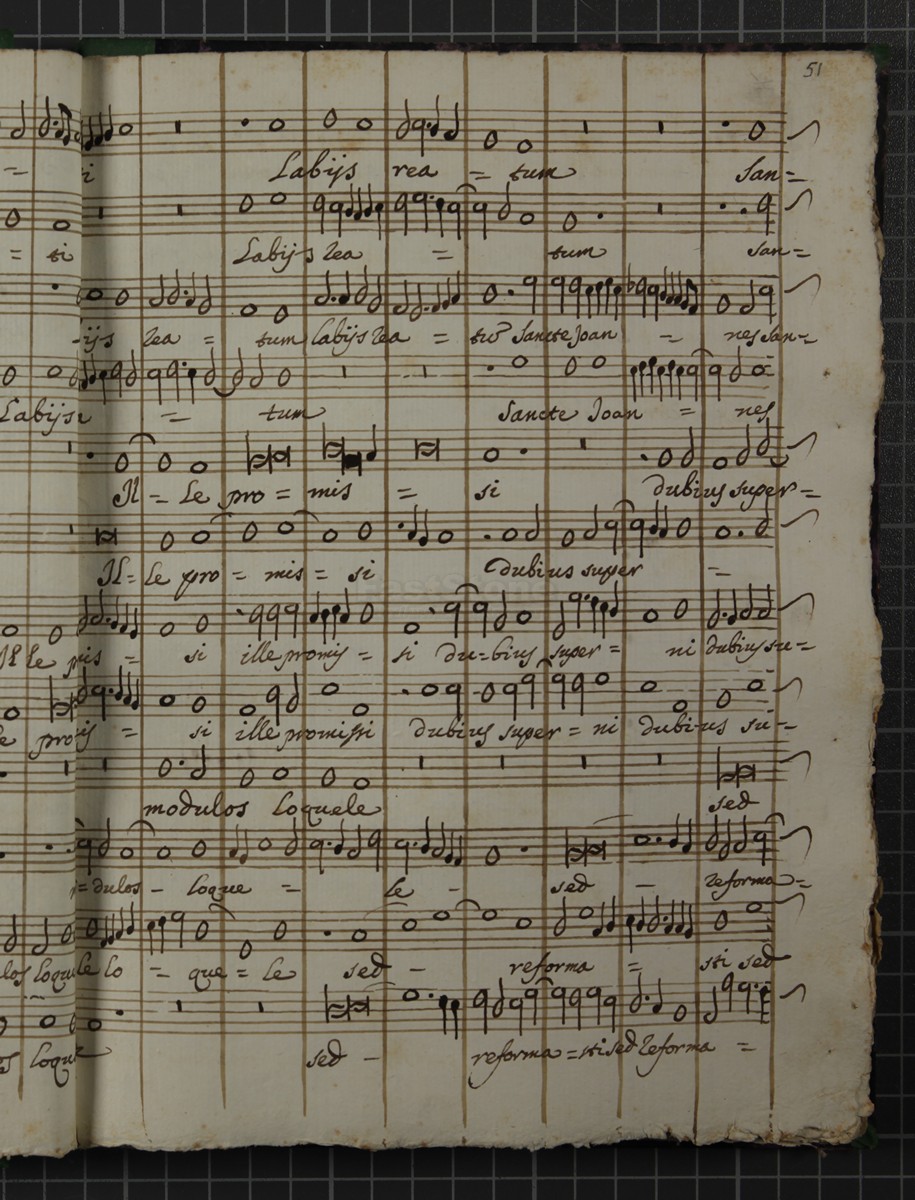 51
= ti Labijs rea = tum San=
= ti Labijs rea = tum san=
-ijs rea = tum labijs rea = tū Sancte Joan = nes San=
Labijs = tum Sancte Joan = nes
Il = le pro = mis = si dubius super =
Il= le pro = mis = si dubius super =
Il le mis = si ille promis = si du=bius super = ni dubius su=
le pro is = si ille promissi dubius super = ni dubius su=
modulos loquele sed
= dulos - loque = le - sed - reforma=
los loque le lo = que = le sed - reforma = sti sed
loque sed - reforma = sti sed reforma =